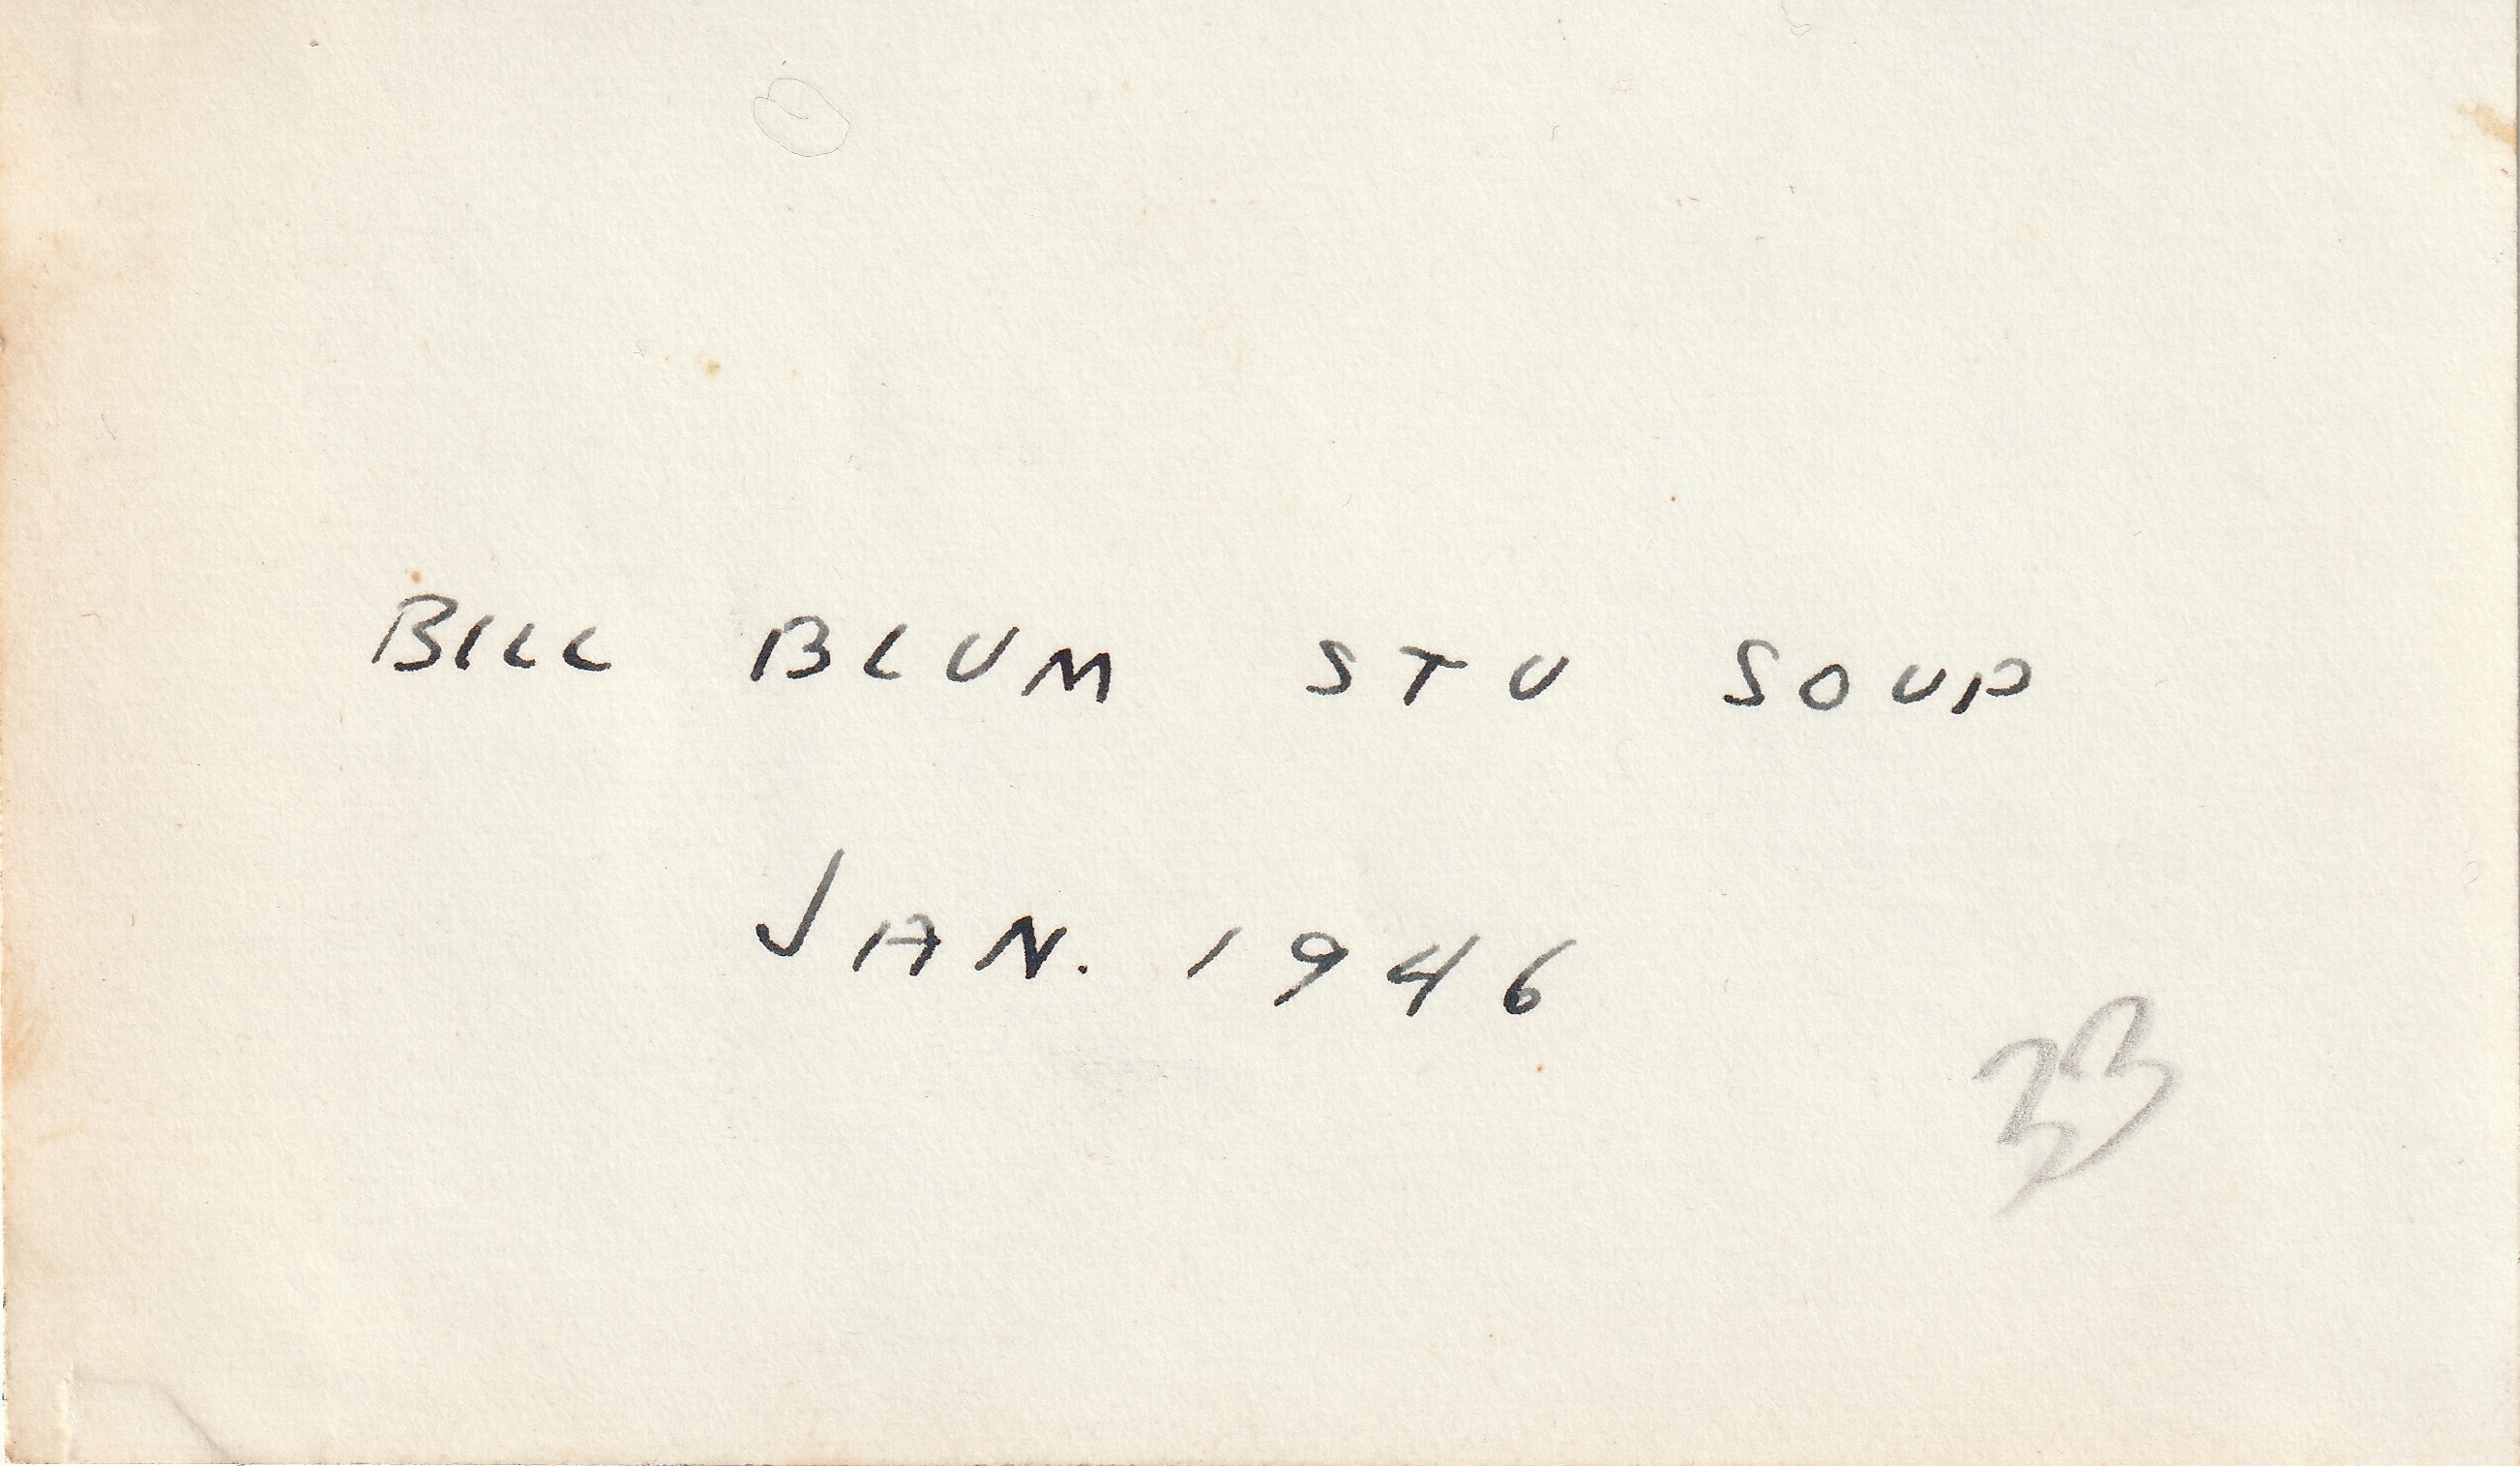 BILL BLUM STU SOUP
JAN. 1946
33